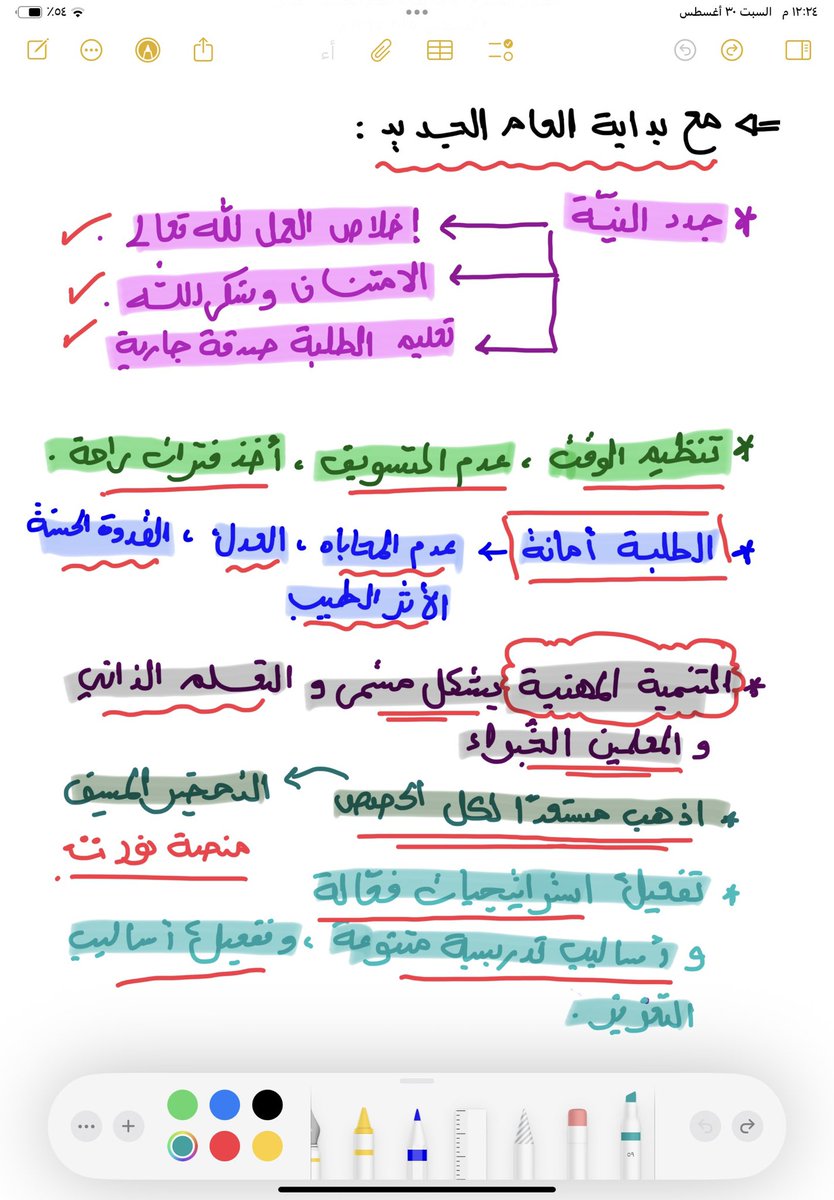 ١٢:٢٤ م السبت ٣٠ أغسطس
٥٤٪
⇐ مع بداية العام الجديد :
* جدد النيّة
إخلاص العمل لله تعالى .
الامتنان وشكر الله .
تعليم الطلبة صدقة جارية
* تنظيم الوقت ، عدم التسويف ، أخذ فترات راحة .
* الطلبة أمانة ← عدم المحاباه ، العدل ، القدوة الحسنة
الأثر الطيب
* التنمية المهنية بشكل مستمر و التعلم الذاتي
و المعلمين الخبراء
* اذهب مستعدًا لكل الحصص
التحضير المسبق
منصة نورت .
* تفعيل استراتيجيات فعّالة
و أساليب تدريسية متنوعة ، وتفعيل أساليب
التعزيز .
٥٩